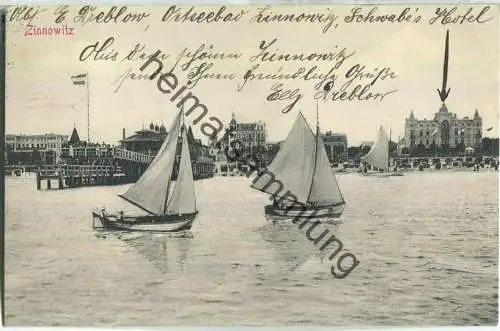 Abs. E. Dreblow, Ostseebad Zinnowitz, Schwabe's Hotel
Zinnowitz
Aus dem schönen Zinnowitz
Ihnen freundliche Grüße
Elly Dreblow
heimatsammlung.de